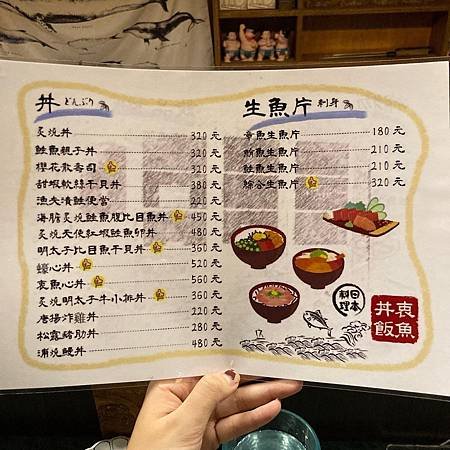 丼 どんぶり
炙燒丼 320元
鮭魚親子丼 320元
櫻花散壽司 320元
甜蝦軟絲干貝丼 380元
漁夫漬鮭便當 220元
海膽炙燒鮭魚腹比目魚丼 450元
炙燒天使紅蝦鮭魚卵丼 480元
明太子比目魚干貝丼 360元
蠔心丼 520元
哀魚心丼 560元
炙燒明太子牛小排丼 360元
唐揚炸雞丼 220元
松露豬肋丼 280元
蒲燒鰻丼 480元
生魚片 刺身
章魚生魚片 180元
旗魚生魚片 210元
鮭魚生魚片 210元
綜合生魚片 320元
日本料理
哀魚丼飯